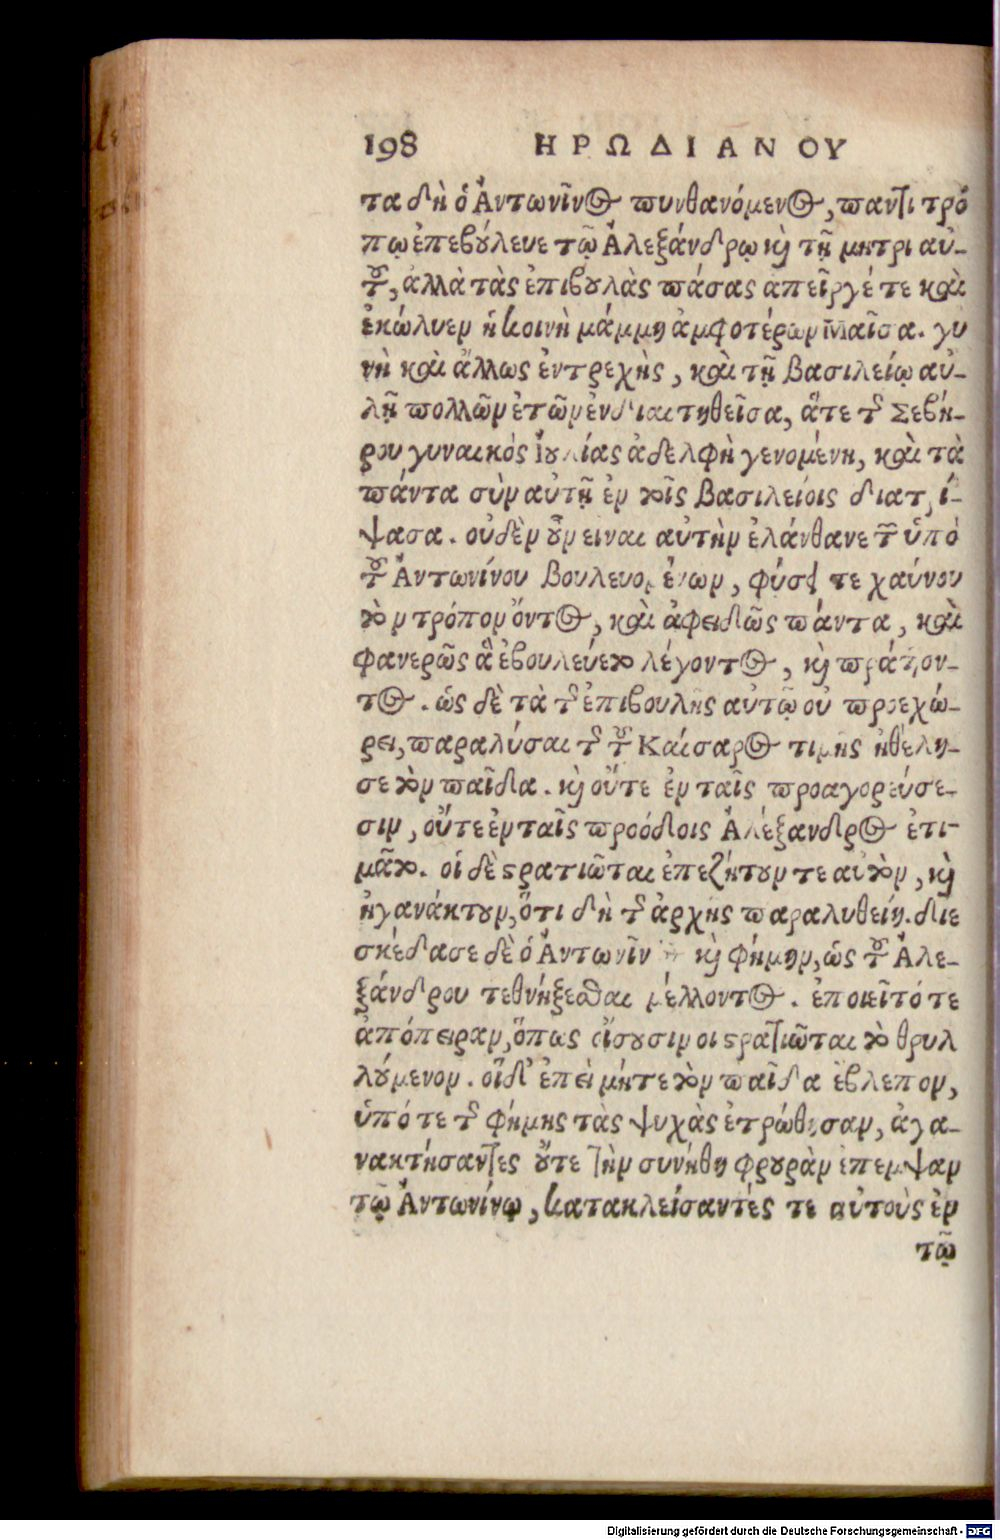 198 ΗΡΩΔΙΑΝΟΥ
τα δὴ ὁ Ἀντωνῖνος πυνθανόμενος, παντὶ τρό
πῳ ἐπεβούλευε τῷ Ἀλεξάνδρῳ καὶ τῇ μητρὶ αὐ-
τοῦ, ἀλλὰ τὰς ἐπιβουλὰς πάσας ἀπεῖργέ τε καὶ
ἐκώλυεν ἡ κοινὴ μάμμη ἀμφοτέρων Μαῖσα. γυ
νὴ καὶ ἄλλως ἐντρεχὴς, καὶ τῇ βασιλείῳ αὐ-
λῇ πολλῶν ἐτῶν ἐνδιαιτηθεῖσα, ἅτε τῆς Σεβή-
ρου γυναικός Ἰουλίας ἀδελφὴ γενομένη, καὶ τὰ
πάντα σὺν αὐτῇ ἐν τοῖς βασιλείοις διατρί-
ψασα. οὐδὲν οὖν εἶναι αὐτὴν ἐλάνθανε τῶν ὑπὸ
τοῦ Ἀντωνίνου βουλευομένων, φύσει τε χαύνου
τὸν τρόπον ὄντος, καὶ ἀφειδῶς πάντα, καὶ
φανερῶς ἃ ἐβουλεύετο λέγοντος, καὶ πράττον-
τος. ὡς δὲ τὰ τῆς ἐπιβουλῆς αὐτῷ οὐ προεχώ-
ρει, παραλύσαι τῆς τοῦ Καίσαρος τιμῆς ἠθέλη-
σε τὸν παῖδα. καὶ οὔτε ἐν ταῖς προαγορεύσε-
σιν, οὔτε ἐν ταῖς προόδοις Ἀλέξανδρος ἐτι-
μᾶτο. οἱ δὲ στρατιῶται ἐπεζήτουν τε αὐτὸν, καὶ
ἠγανάκτουν, ὅτι δὴ τῆς ἀρχῆς παραλυθείη. διε
σκέδασε δὲ ὁ Ἀντωνῖνος καὶ φήμην, ὡς τοῦ Ἀλε-
ξάνδρου τεθνήξεσθαι μέλλοντος. ἐποιεῖτό τε
ἀπόπειραν, ὅπως οἴσουσιν οι στρατιῶται τὸ θρυλ
λούμενον. οἳ δ' ἐπεὶ μήτε τὸν παῖδα ἔβλεπον,
ὑπό τε τῆς φήμης τὰς ψυχὰς ἐτρώθησαν, ἀγα-
νακτήσαντες οὔτε τὴν συνήθη φρουρὰν ἔπεμψαν
τῷ Ἀντωνίνῳ, κατακλείσαντές τε αὑτοὺς ἐν
τῷ
Digitalisierung gefördert durch die Deutsche Forschungsgemeinschaft - DFG